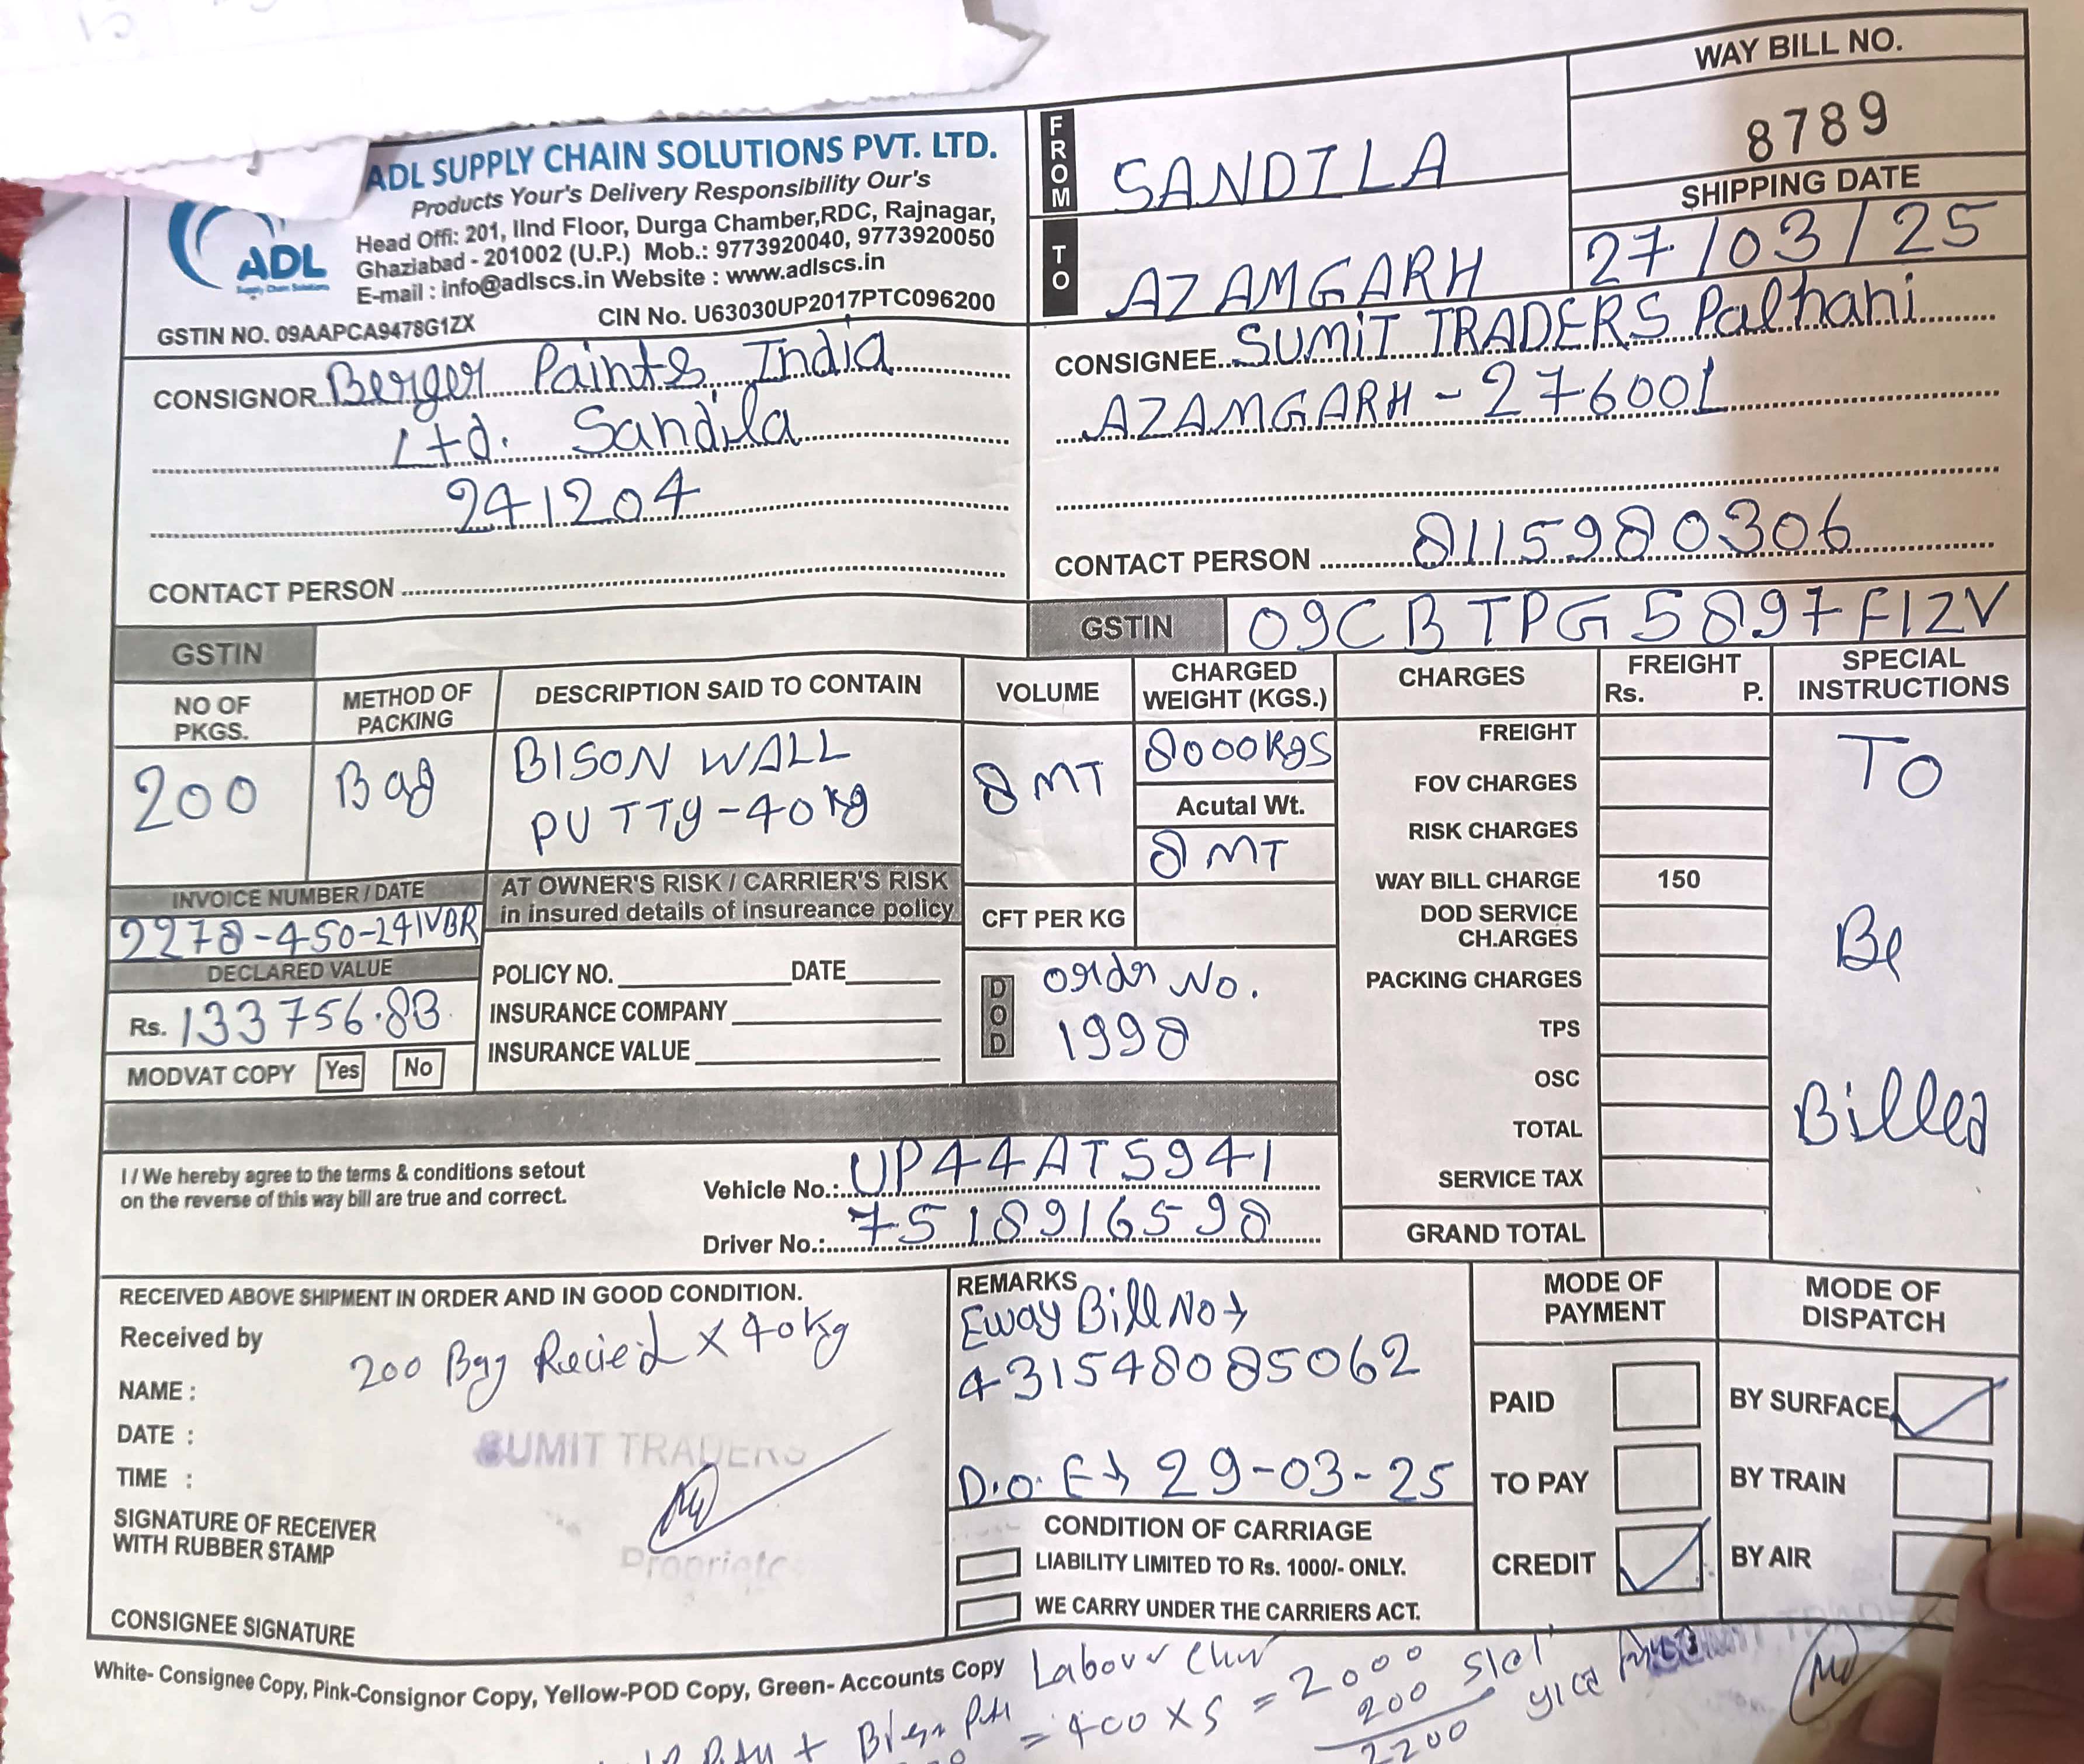 WAY BILL NO.
8789
SHIPPING DATE
27/03/25
ADL SUPPLY CHAIN SOLUTIONS PVT. LTD.
Products Your's Delivery Responsibility Our's
Head Offi: 201, IInd Floor, Durga Chamber,RDC, Rajnagar,
Ghaziabad - 201002 (U.P.) Mob.: 9773920040, 9773920050
E-mail : info@adlscs.in Website : www.adlscs.in
GSTIN NO. 09AAPCA9478G1ZX CIN No. U63030UP2017PTC096200
ADL
Supply Chain Solutions
FROM SANDILA
TO AZAMGARH
CONSIGNOR Berger Paints India
Ltd. Sandila
241204
CONTACT PERSON
GSTIN
CONSIGNEE SUMIT TRADERS Palhani
AZAMGARH - 276001
CONTACT PERSON 8115980306
GSTIN 09CBTPG5897F1ZV
NO OF PKGS.
METHOD OF PACKING
DESCRIPTION SAID TO CONTAIN
VOLUME
CHARGED WEIGHT (KGS.)
CHARGES
FREIGHT Rs. P.
SPECIAL INSTRUCTIONS
200
Bag
BISON WALL
PUTTY-40kg
8 MT
8000kgs
Acutal Wt.
8 MT
CFT PER KG
DOD
Order No.
1998
INVOICE NUMBER / DATE
2278-450-241VBR
DECLARED VALUE
Rs. 133756.83
MODVAT COPY Yes No
AT OWNER'S RISK / CARRIER'S RISK
in insured details of insureance policy
POLICY NO. DATE
INSURANCE COMPANY
INSURANCE VALUE
FREIGHT
FOV CHARGES
RISK CHARGES
WAY BILL CHARGE 150
DOD SERVICE
CH.ARGES
PACKING CHARGES
TPS
OSC
TOTAL
SERVICE TAX
GRAND TOTAL
To
Be
Billed
I / We hereby agree to the terms & conditions setout
on the reverse of this way bill are true and correct.
Vehicle No.: UP44AT5941
Driver No.: 7518916598
RECEIVED ABOVE SHIPMENT IN ORDER AND IN GOOD CONDITION.
Received by
200 Bag Recied x 40kg
NAME :
DATE :
TIME :
SUMIT TRADERS
SIGNATURE OF RECEIVER
WITH RUBBER STAMP
CONSIGNEE SIGNATURE
REMARKS
Eway Bill No →
431548085062
D.O.E → 29-03-25
CONDITION OF CARRIAGE
LIABILITY LIMITED TO Rs. 1000/- ONLY.
WE CARRY UNDER THE CARRIERS ACT.
MODE OF PAYMENT
PAID
TO PAY
CREDIT
MODE OF DISPATCH
BY SURFACE
BY TRAIN
BY AIR
White- Consignee Copy, Pink-Consignor Copy, Yellow-POD Copy, Green- Accounts Copy
Labour
= 400 x 5 = 2000
200
2200